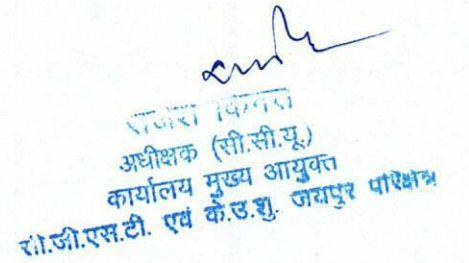 अधीक्षक (सी.सी.यू.)
कार्यालय मुख्य आयुक्त
सी.जी.एस.टी. एवं के.उ.शु. जयपुर परिक्षेत्र